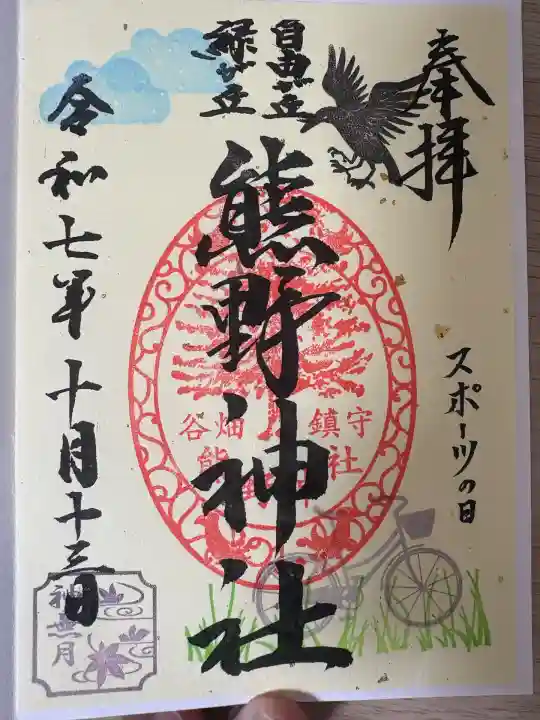 奉拝
スポーツの日
自由が丘
緑が丘
熊野神社
鎮守
谷畑
社
熊
令和七年十月十三日
神無月